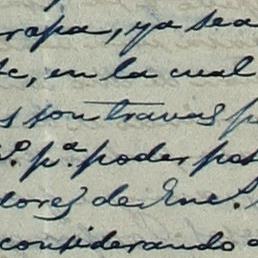 rapa, ya sea
c, en la cual
s son travas p
º. pª. poder pas
dores de Ene.
considerando